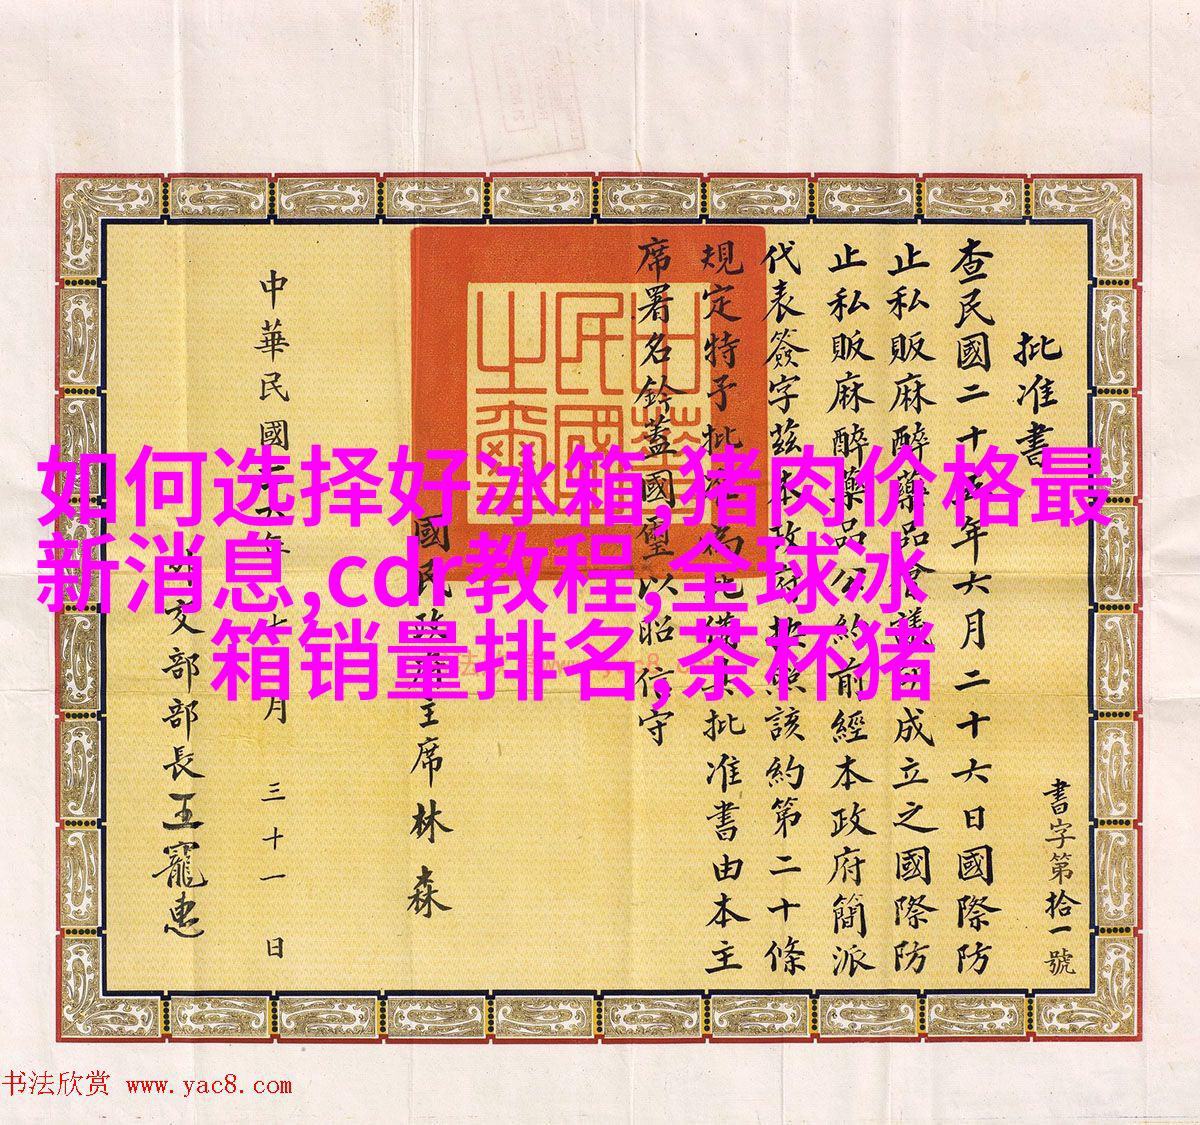 如何选择好冰箱,猪肉价格最
新消息,cdr教程,全球冰
箱销量排名,茶杯猪
批准書
書字第拾一號
查民國二十年六月二十六日國際防
止私販麻醉藥品會議成立之國際防
止私販麻醉藥品公約前經本政府簡派
代表簽字茲本政府照該約第二十條
規定特予批准為此備具批准書由本主
席署名鈐蓋國璽以昭信守
中華民國之璽
國民政府主席林森
中華民國六年七月三十一日
交部部長王寵惠
书法欣赏 www.yac8.com